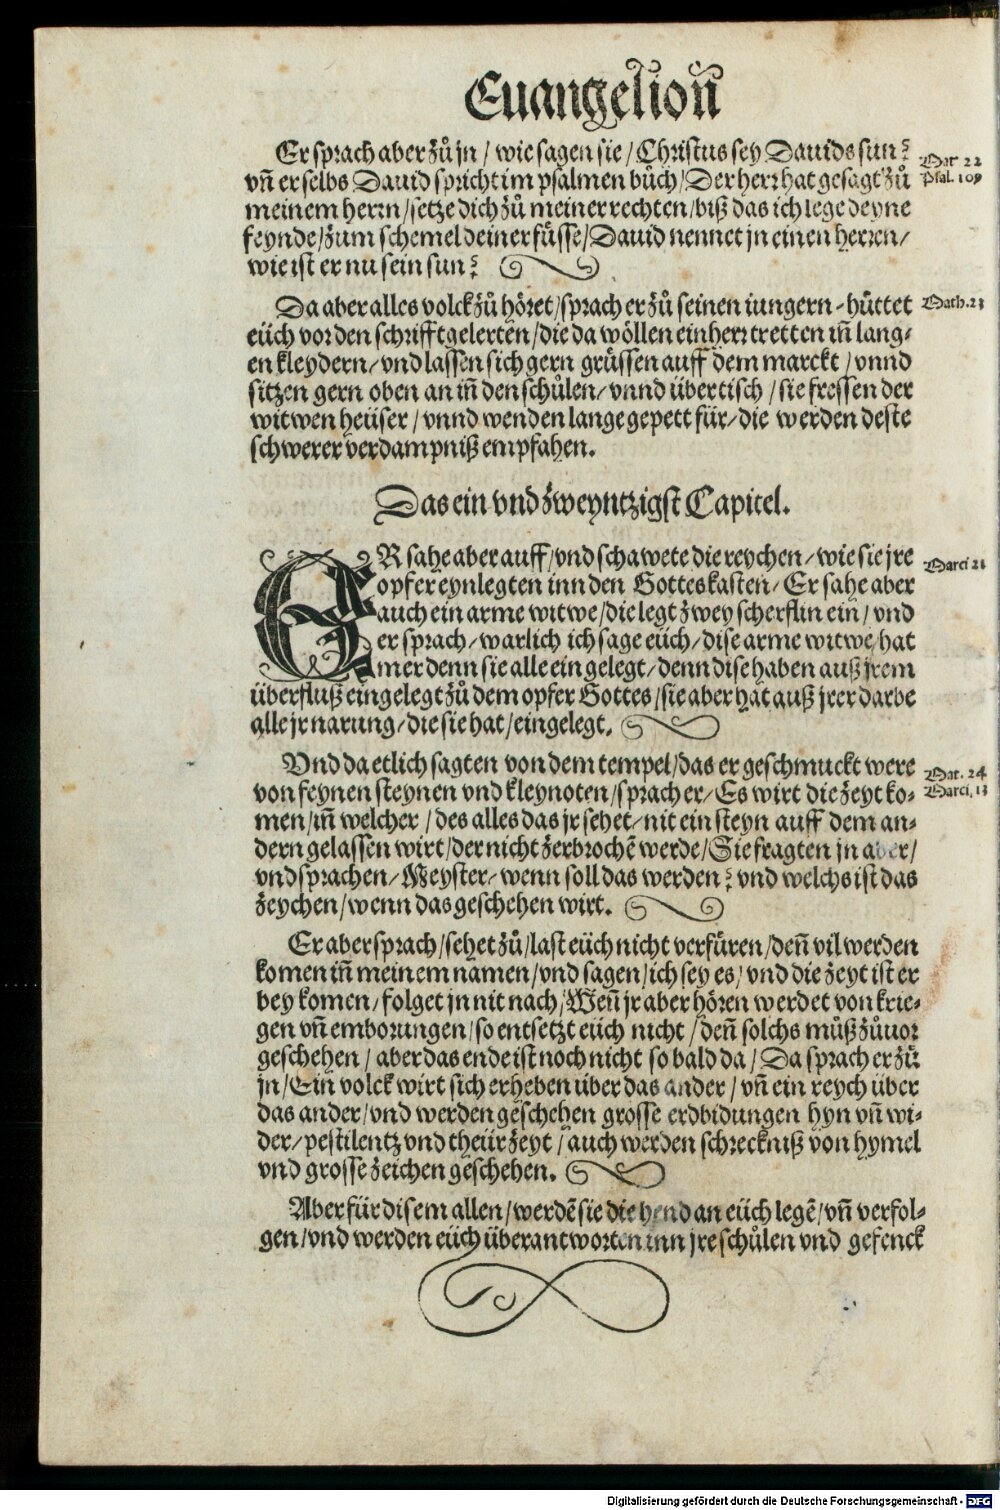 Euangelion̄
Er sprach aber zů jn / wie sagen sie / Christus sey Dauids sun?
vn̄ er selbs Dauid spricht im psalmen bůch / Der herr hat gesagt zů
meinem herrn / setze dich zů meiner rechten / biß das ich lege deyne
feynde / zum schemel deiner füsse / Dauid nennet jn einen herren /
wie ist er nu sein sun?
Mat 22
Psal. 109
Da aber alles volck zů höret / sprach er zů seinen iungern / hüttet
eüch vor den schrifftgelerten / die da wöllen einherr tretten in̄ lang⸗
en kleydern / vnd lassen sich gern grüssen auff dem marckt / vnnd
sitzen gern oben an in̄ den schůlen / vnnd übertisch / sie fressen der
witwen heüser / vnnd wenden lange gepett für / die werden deste
schwerer verdampniß empfahen.
Math. 23
Das ein vnd zweyntzigst Capitel.
ER sahe aber auff / vnd schawete die reychen / wie sie jre
opfer eynlegten inn den Gotteskasten / Er sahe aber
auch ein arme witwe / die legt zwey scherflin ein / vnd
er sprach / warlich ich sage eüch / dise arme witwe / hat
mer denn sie alle ein gelegt / denn dise haben auß jrem
überfluß eingelegt zů dem opfer Gottes / sie aber hat auß jrer darbe
alle jr narung / die sie hat / eingelegt.
Marci 21
Vnd da etlich sagten von dem tempel / das er geschmuckt were
von feynen steynen vnd kleynoten / sprach er / Es wirt die zeyt ko⸗
men / in̄ welcher / des alles das jr sehet / nit ein steyn auff dem an⸗
dern gelassen wirt / der nicht zerbrochē werde / Sie fragten jn aber /
vnd sprachen / Meyster / wenn soll das werden? vnd welchs ist das
zeychen / wenn das geschehen wirt.
Mat. 24
Marci. 13
Er aber sprach / sehet zů / last eüch nicht verfüren / den̄ vil werden
komen in̄ meinem namen / vnd sagen / ich sey es / vnd die zeyt ist er
bey komen / folget jn nit nach / Wen̄ jr aber hören werdet von krie⸗
gen vn̄ emborungen / so entsetzt eüch nicht / den̄ solchs můß zůuor
geschehen / aber das ende ist noch nicht so bald da / Da sprach er zů
jn / Ein volck wirt sich erheben über das ander / vn̄ ein reych über
das ander / vnd werden geschehen grosse erdbidungen hyn vn̄ wi⸗
der / pestilentz vnd theür zeyt / auch werden schreckniß von hymel
vnd grosse zeichen geschehen.
Aber für disem allen / werdē sie die hend an eüch legē / vn̄ verfol⸗
gen / vnd werden eüch überantworten inn jre schůlen vnd gefenck
Digitalisierung gefördert durch die Deutsche Forschungsgemeinschaft - DFG